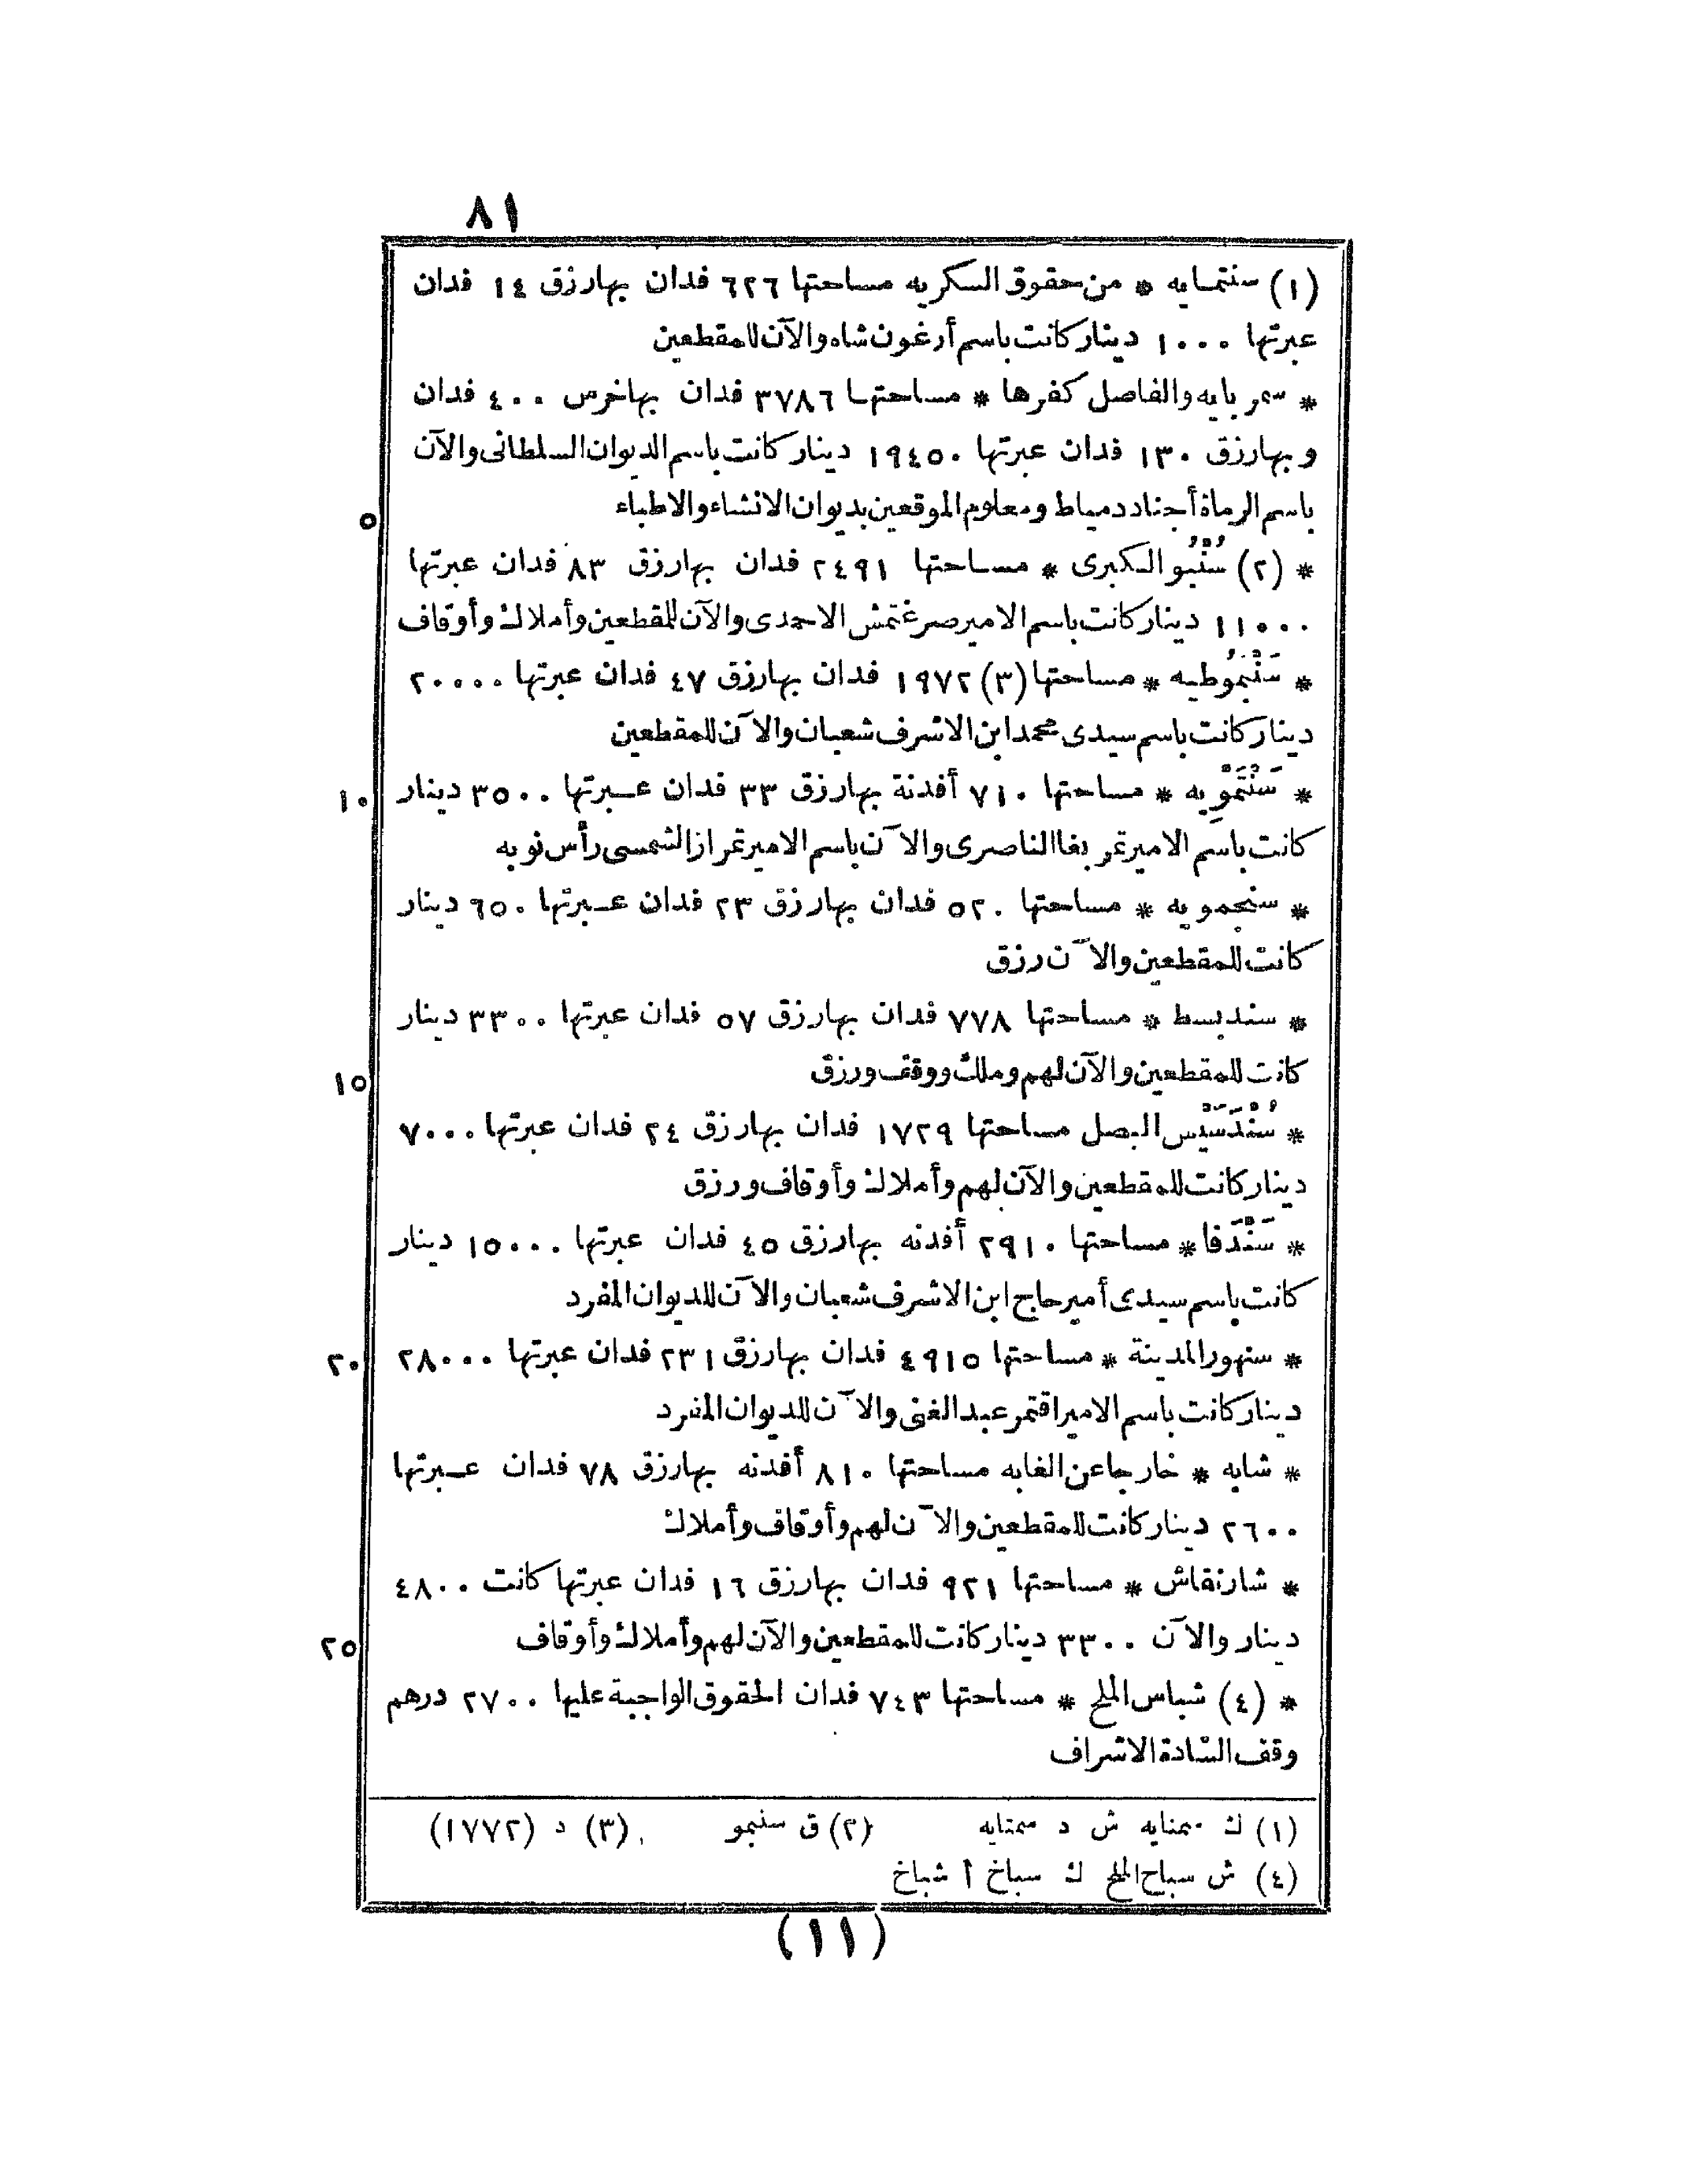 ٨١
(١) سنتمايه * من حقوق السكريه مساحتها ٦٢٦ فدان بها رزق ١٤ فدان
عبرتها ١٠٠٠ دينار كانت باسم أرغون شاه والآن للمقطعين
* سمر بايه والفاصل كفرها * مساحتها ٣٧٨٦ فدان بها خرس ٤٠٠ فدان
وبها رزق ١٣٠ فدان عبرتها ١٩٤٥٠ دينار كانت باسم الديوان السلطانى والآن
باسم الرماة أجناد دمياط ومعلوم الموقعين بديوان الانشاء والاطباء
٥
* (٢) سُنْبُو الكبرى * مساحتها ٢٤٩١ فدان بها رزق ٨٣ فدان عبرتها
١١٠٠٠ دينار كانت باسم الامير صرغتمش الاحمدى والآن للمقطعين وأملاك وأوقاف
* سَنْبَمُوطيه * مساحتها (٣) ١٩٧٢ فدان بها رزق ٤٧ فدان عبرتها ٢٠٠٠٠
دينار كانت باسم سيدى محمد ابن الاشرف شعبان والآن للمقطعين
* سَنْتَمَوِيه * مساحتها ٧١٠ أفدنة بها رزق ٣٣ فدان عبرتها ٣٥٠٠ دينار
١٠
كانت باسم الامير تمر بغا الناصرى والآن باسم الامير تمراز الشمسى رأس نوبه
* سنجمويه * مساحتها ٥٢٠ فدان بها رزق ٢٣ فدان عبرتها ٦٥٠ دينار
كانت للمقطعين والآن رزق
* سندبسط * مساحتها ٧٧٨ فدان بها رزق ٥٧ فدان عبرتها ٣٣٠٠ دينار
كانت للمقطعين والآن لهم وملك ووقف ورزق
١٥
* سُنْدَسَيْس البصل مساحتها ١٧٢٩ فدان بها رزق ٢٤ فدان عبرتها ٧٠٠٠
دينار كانت للمقطعين والآن لهم وأملاك وأوقاف ورزق
* سَنْدَفا * مساحتها ٢٩١٠ أفدنه بها رزق ٤٥ فدان عبرتها ١٥٠٠٠ دينار
كانت باسم سيدى أمير حاج ابن الاشرف شعبان والآن للديوان المفرد
* سنهور المدينة * مساحتها ٤٩١٥ فدان بها رزق ٢٣١ فدان عبرتها ٢٨٠٠٠
٢٠
دينار كانت باسم الامير اقتمر عبد الغنى والآن للديوان المفرد
* شابه * خارجا عن الغابه مساحتها ٨١٠ أفدنه بها رزق ٧٨ فدان عبرتها
٢٦٠٠ دينار كانت للمقطعين والآن لهم وأوقاف وأملاك
* شارنقاش * مساحتها ٩٢١ فدان بها رزق ١٦ فدان عبرتها كانت ٤٨٠٠
دينار والآن ٣٣٠٠ دينار كانت للمقطعين والآن لهم وأملاك وأوقاف
٢٥
* (٤) شباس الملح * مساحتها ٧٤٣ فدان الحقوق الواجبة عليها ٢٧٠٠ درهم
وقف السّادة الاشراف
(١) ك ش د (٢) ق سنيمو (٣) د (١٧٧٢)
(٤) ش سباح الملح ك سباخ أ شباخ
(١١)